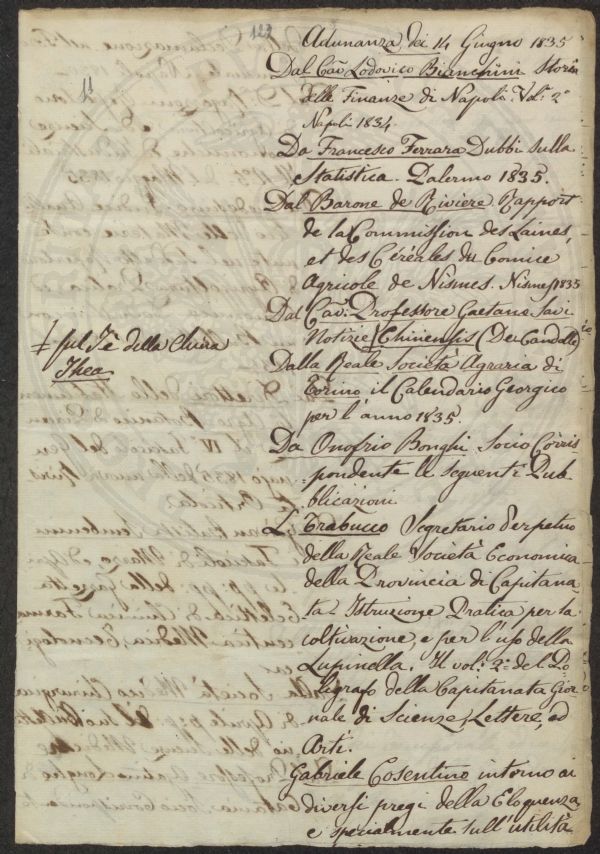 127
11
Adunanza dei 14 Giugno 1835
Dal Cav. Lodovico Bianchini Storia
delle Finanze di Napoli. Vol. 2°
Napoli 1834.
Da Francesco Ferrara Dubbi sulla
Statistica. Palermo 1835.
Dal Barone de Riviere. Rapport
de la Commission des Laines,
et des Céréales du Comice
Agricole de Nismes. Nismes 1835
Dal Cav. Professore Gaetano Savi
Notizie Chinensis (De Candolle)
ǂ sul Tè della China
Thea
Dalla Reale Società Agraria di
Torino il Calendario Georgico
per l'anno 1835.
Da Onofrio Bonghi Socio Corris-
pondente le seguenti Pub-
blicazioni
L. Trabucco Segretario Perpetuo
della Reale Società Economica
della Provincia di Capitana-
ta - Istruzione Pratica per la
coltivazione, e per l'uso della
Lupinella. Il vol. 2° del Po-
ligrafo della Capitanata Gior-
nale di Scienze, Lettere, ed
Arti.
Gabriele Cosentino intorno ai
diversi pregi della Eloquenza
e specialmente sull'utilità